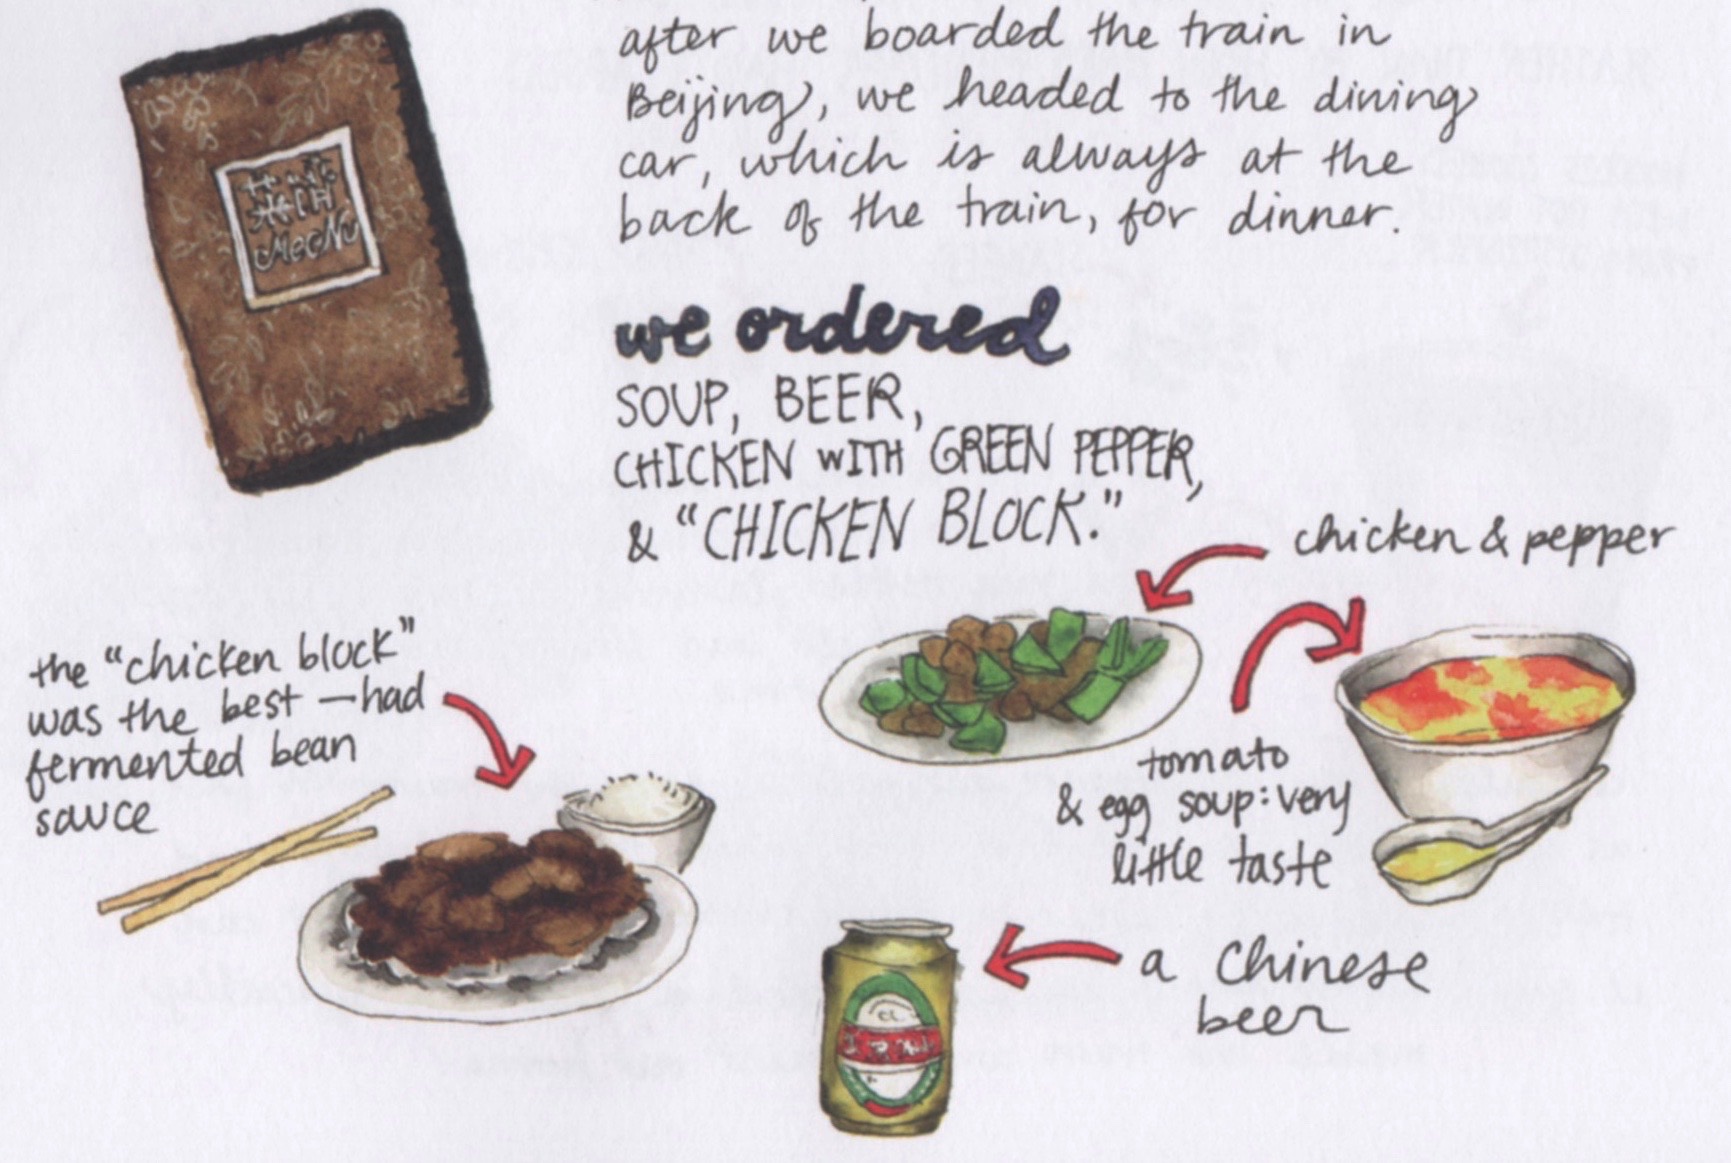 after we boarded the train in
Beijing, we headed to the dining
car, which is always at the
back of the train, for dinner.
MeNu
we ordered
SOUP, BEER,
CHICKEN WITH GREEN PEPPER,
& "CHICKEN BLOCK."
chicken & pepper
the "chicken block"
was the best — had
fermented bean
sauce
tomato
& egg soup: very
little taste
a Chinese
beer